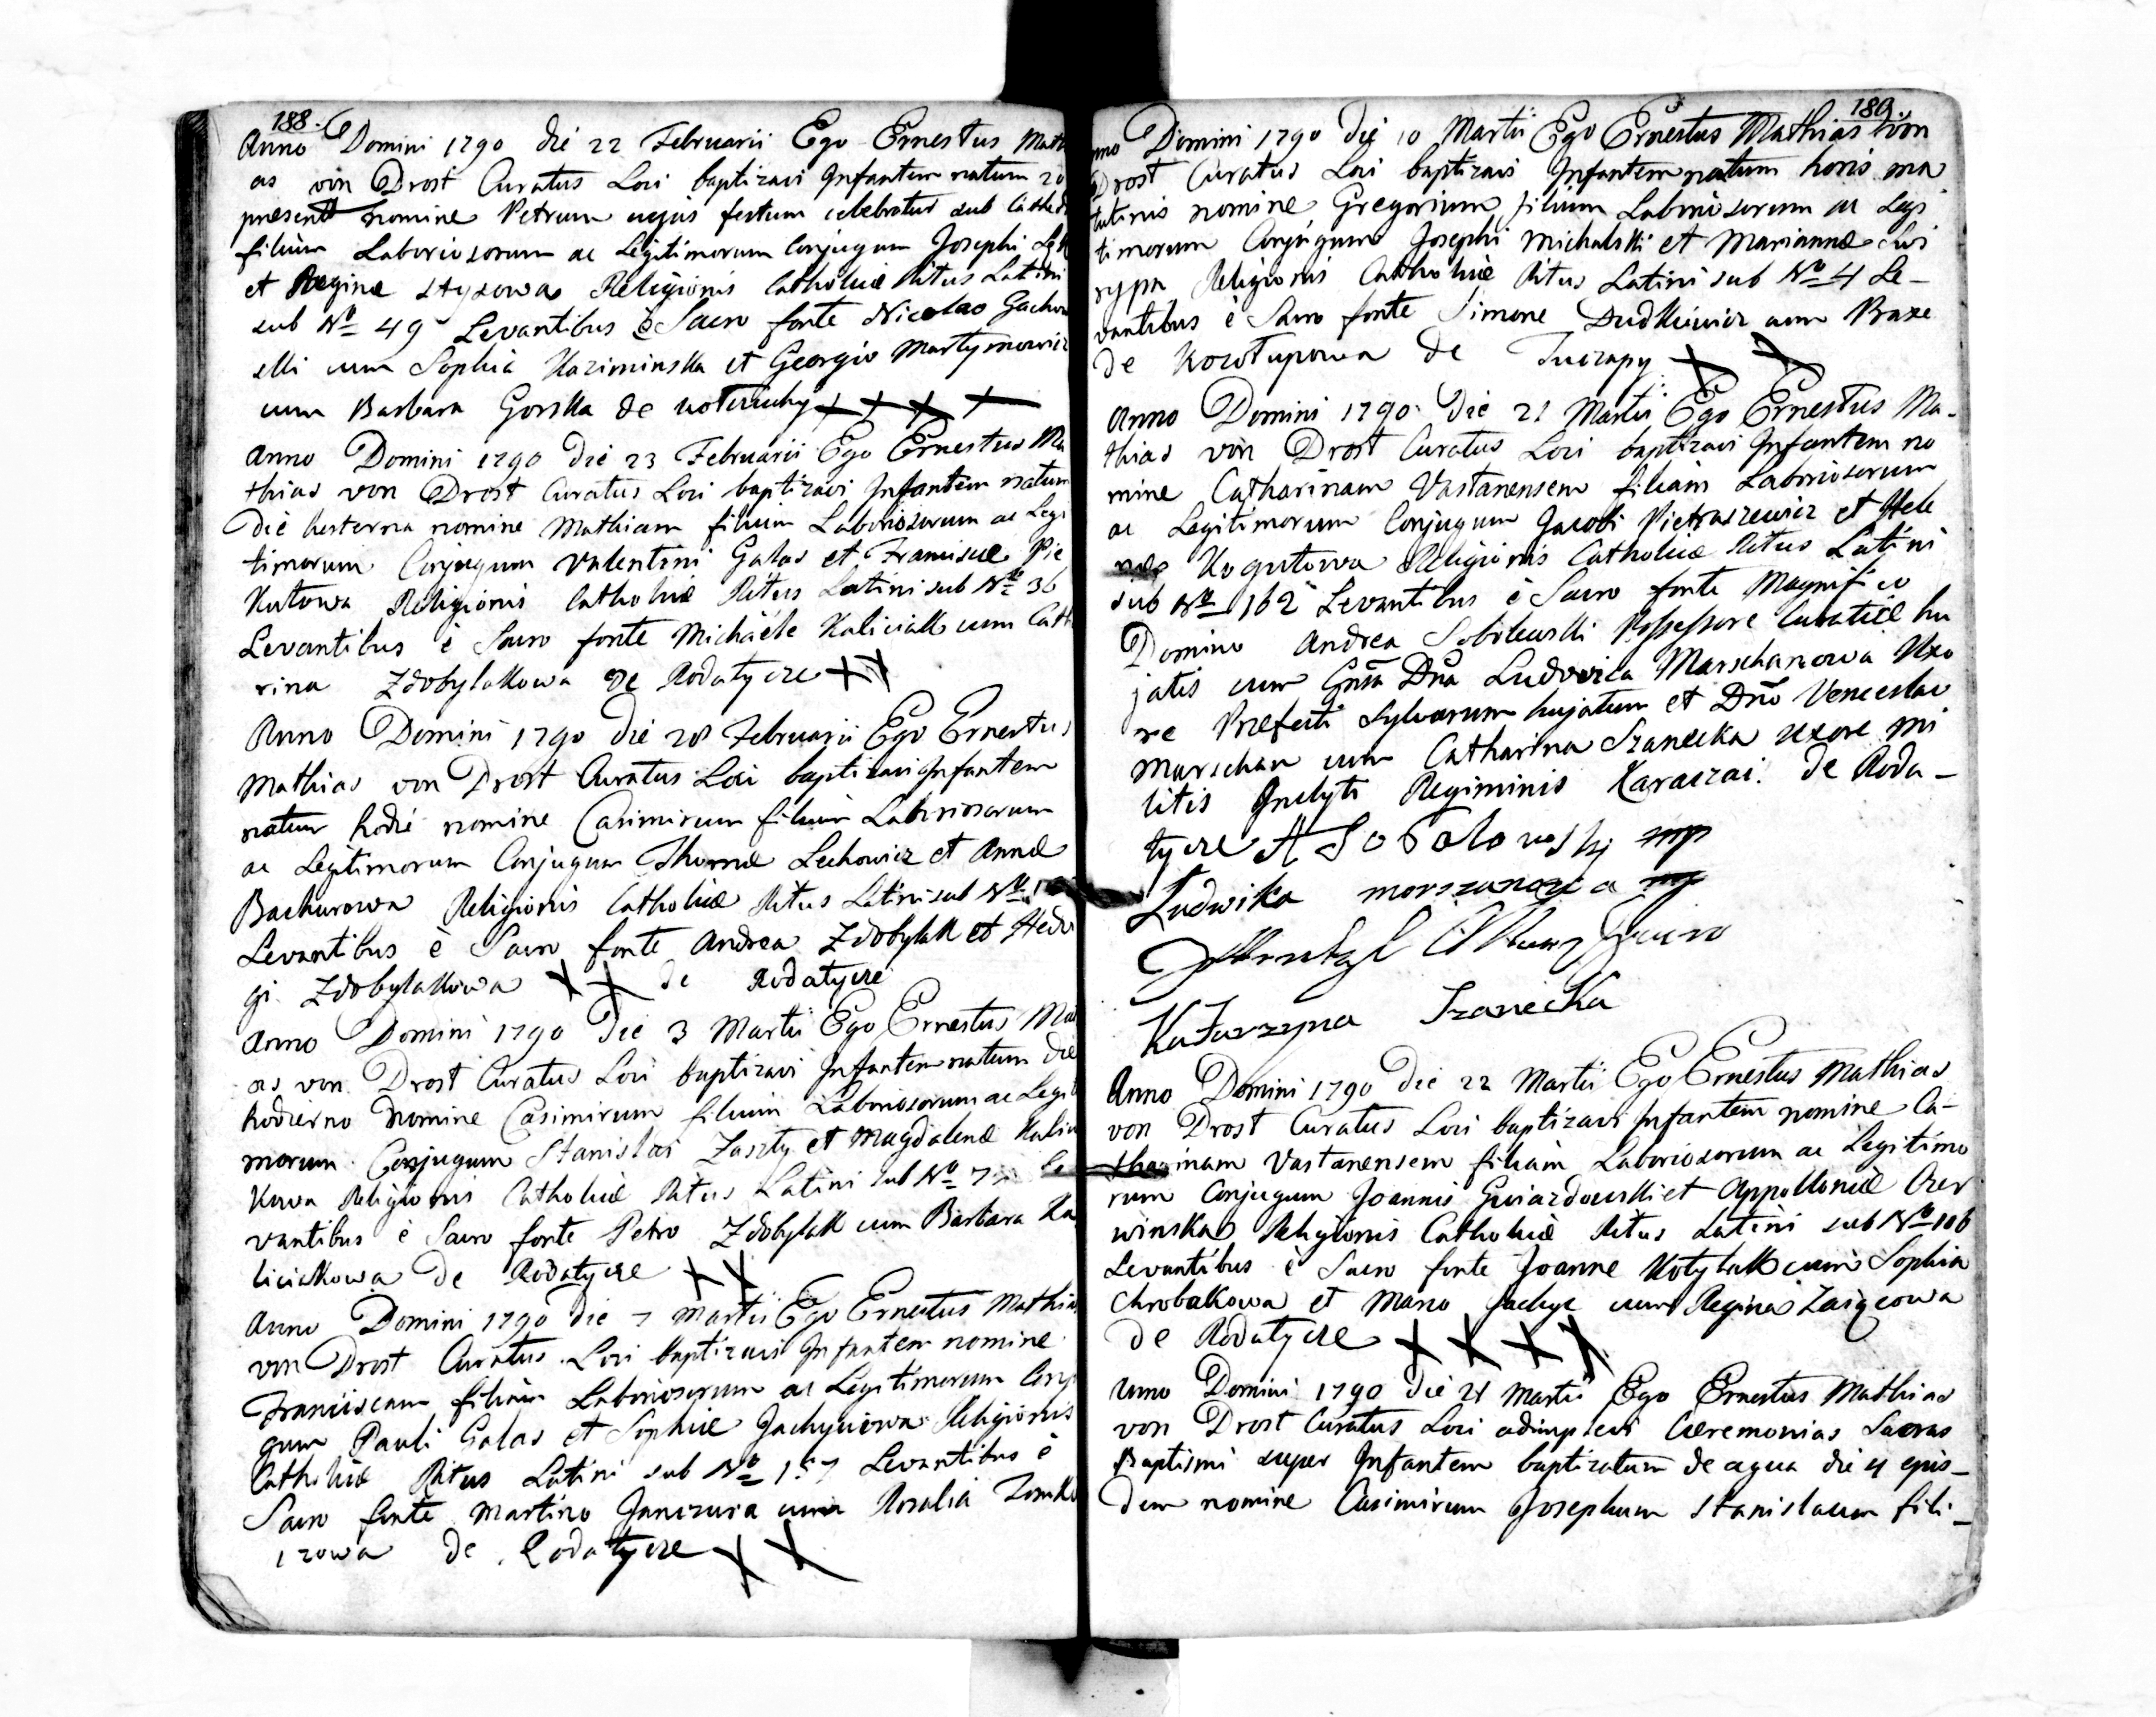 188.
Anno Domini 1790 die 22 Februarii Ego Ernestus Math
as von Drost Curatus Loci baptizavi Infantem natum 20
present nomine Petrum cujus festum celebratus sub Cathed
filium Laboriosorum ac Legitimorum Conjugum Josephi
et Reginæ Styzowa Religionis Catholicæ Ritus Latini
sub Nº 49 Levantibus è Sacro fonte Nicolao Gachow
elli cum Sophia Kaziminska et Georgio Martynowicz
cum Barbara Gorska de
Anno Domini 1790 die 23 Februarii Ego Ernestus Ma
thias von Drost Curatus Loci baptizavi Infantem natum
die hesterna nomine Mathiam filium Laboriosorum ac Legi
timorum Conjugum Valentini Galas et Franciscæ Pie
Kutowa Religionis Catholicæ Ritus Latini sub Nº 36
Levantibus è Sacro fonte Michaele Kaliciak cum Cath
rina Zdobylakowa de Rodatycze XX
Anno Domini 1790 die 28 Februarii Ego Ernestus
Mathias von Drost Curatus Loci baptizavi Infantem
natum hodie nomine Casimirum filium Laboriosorum
ac Legitimorum Conjugum Thomæ Lechowicz et Annæ
Bachurowa Religionis Catholicæ Ritus Latini sub Nº
Levantibus è Sacro fonte Andrea Zdobylak et Hedv
gi Zdobylakowa X X de Rodatycze
Anno Domini 1790 die 3 Martii Ego Ernestus Ma
as von Drost Curatus Loci baptizavi Infantem natum die
hodierno nomine Casimirum filium Laboriosorum ac Legit
morum Conjugum Stanislai Zaszty et Magdalenæ Kalic
Kowa Religionis Catholicæ Ritus Latini sub Nº 7 Le
vantibus è Sacro fonte Petro Zdobylak cum Barbara Ka
liciakowa de Rodatycze X X
Anno Domini 1790 die 7 Martii Ego Ernestus Mathias
von Drost Curatus Loci baptizavi Infantem nomine
Franciscam filiam Laboriosorum ac Legitimorum Conj
gum Pauli Galas et Sophiæ Jachyciowa Religionis
Catholicæ Ritus Latini sub Nº 157 Levantibus è
Sacro fonte Martino Janczura cum Rosalia Tomk
czowa de Rodatycze X X
189.
nno Domini 1790 die 10 Martii Ego Ernestus Mathias von
Drost Curatus Loci baptizavi Infantem natum horis ma
tutinis nomine Gregorium filium Laboriosorum ac Legi
timorum Conjugum Josephi Michalski et Mariannæ Chi
rypa Religionis Catholicæ Ritus Latini sub Nº 4 Le-
vantibus è Sacro fonte Simone Dudkiewicz cum Praxe
de Kozołupowa de Tuczapy X X
Anno Domini 1790 die 21 Martii Ego Ernestus Ma-
thias von Drost Curatus Loci baptizavi Infantem no
mine Catharinam Vastanensem filiam Laboriosorum
ac Legitimorum Conjugum Jacobi Pietraszewicz et Hele
næ Kogutowa Religionis Catholicæ Ritus Latini
sub Nº 162 Levantibus è Sacro fonte Magnifico
Domino Andrea Sobolewski Possessore Curatiæ hu
jatis cum Gnsa Dna Ludovica Marschanowa Uxo
re Præfecti Sylvarum hujatum et Dno Venceslao
Marschan cum Catharina Szanecka uxore mi
litis Inclyti Regiminis Karaczai. de Roda-
tycze A Sobolowskj mp
Ludwika morszanowa mp
Katarzyna Szanecka
Anno Domini 1790 die 22 Martii Ego Ernestus Mathias
von Drost Curatus Loci baptizavi Infantem nomine Ca-
tharinam Vastanensem filiam Laboriosorum ac Legitimo
rum Conjugum Joannis Gwiazdowski et Appolloniæ Czer
winska Religionis Catholicæ Ritus Latini sub Nº 106
Levantibus è Sacro fonte Joanne Kotylak cum Sophia
Chrobakowa et Marco Jachyc cum Regina Zaiącowa
de Rodatycze X X X X
Anno Domini 1790 die 21 Martii Ego Ernestus Mathias
von Drost Curatus Loci adimplevi Cæremonias Sacras
Baptismi super Infantem baptizatum de aqua die 4 ejus-
dem nomine Casimirum Josephum Stanislaum fili-